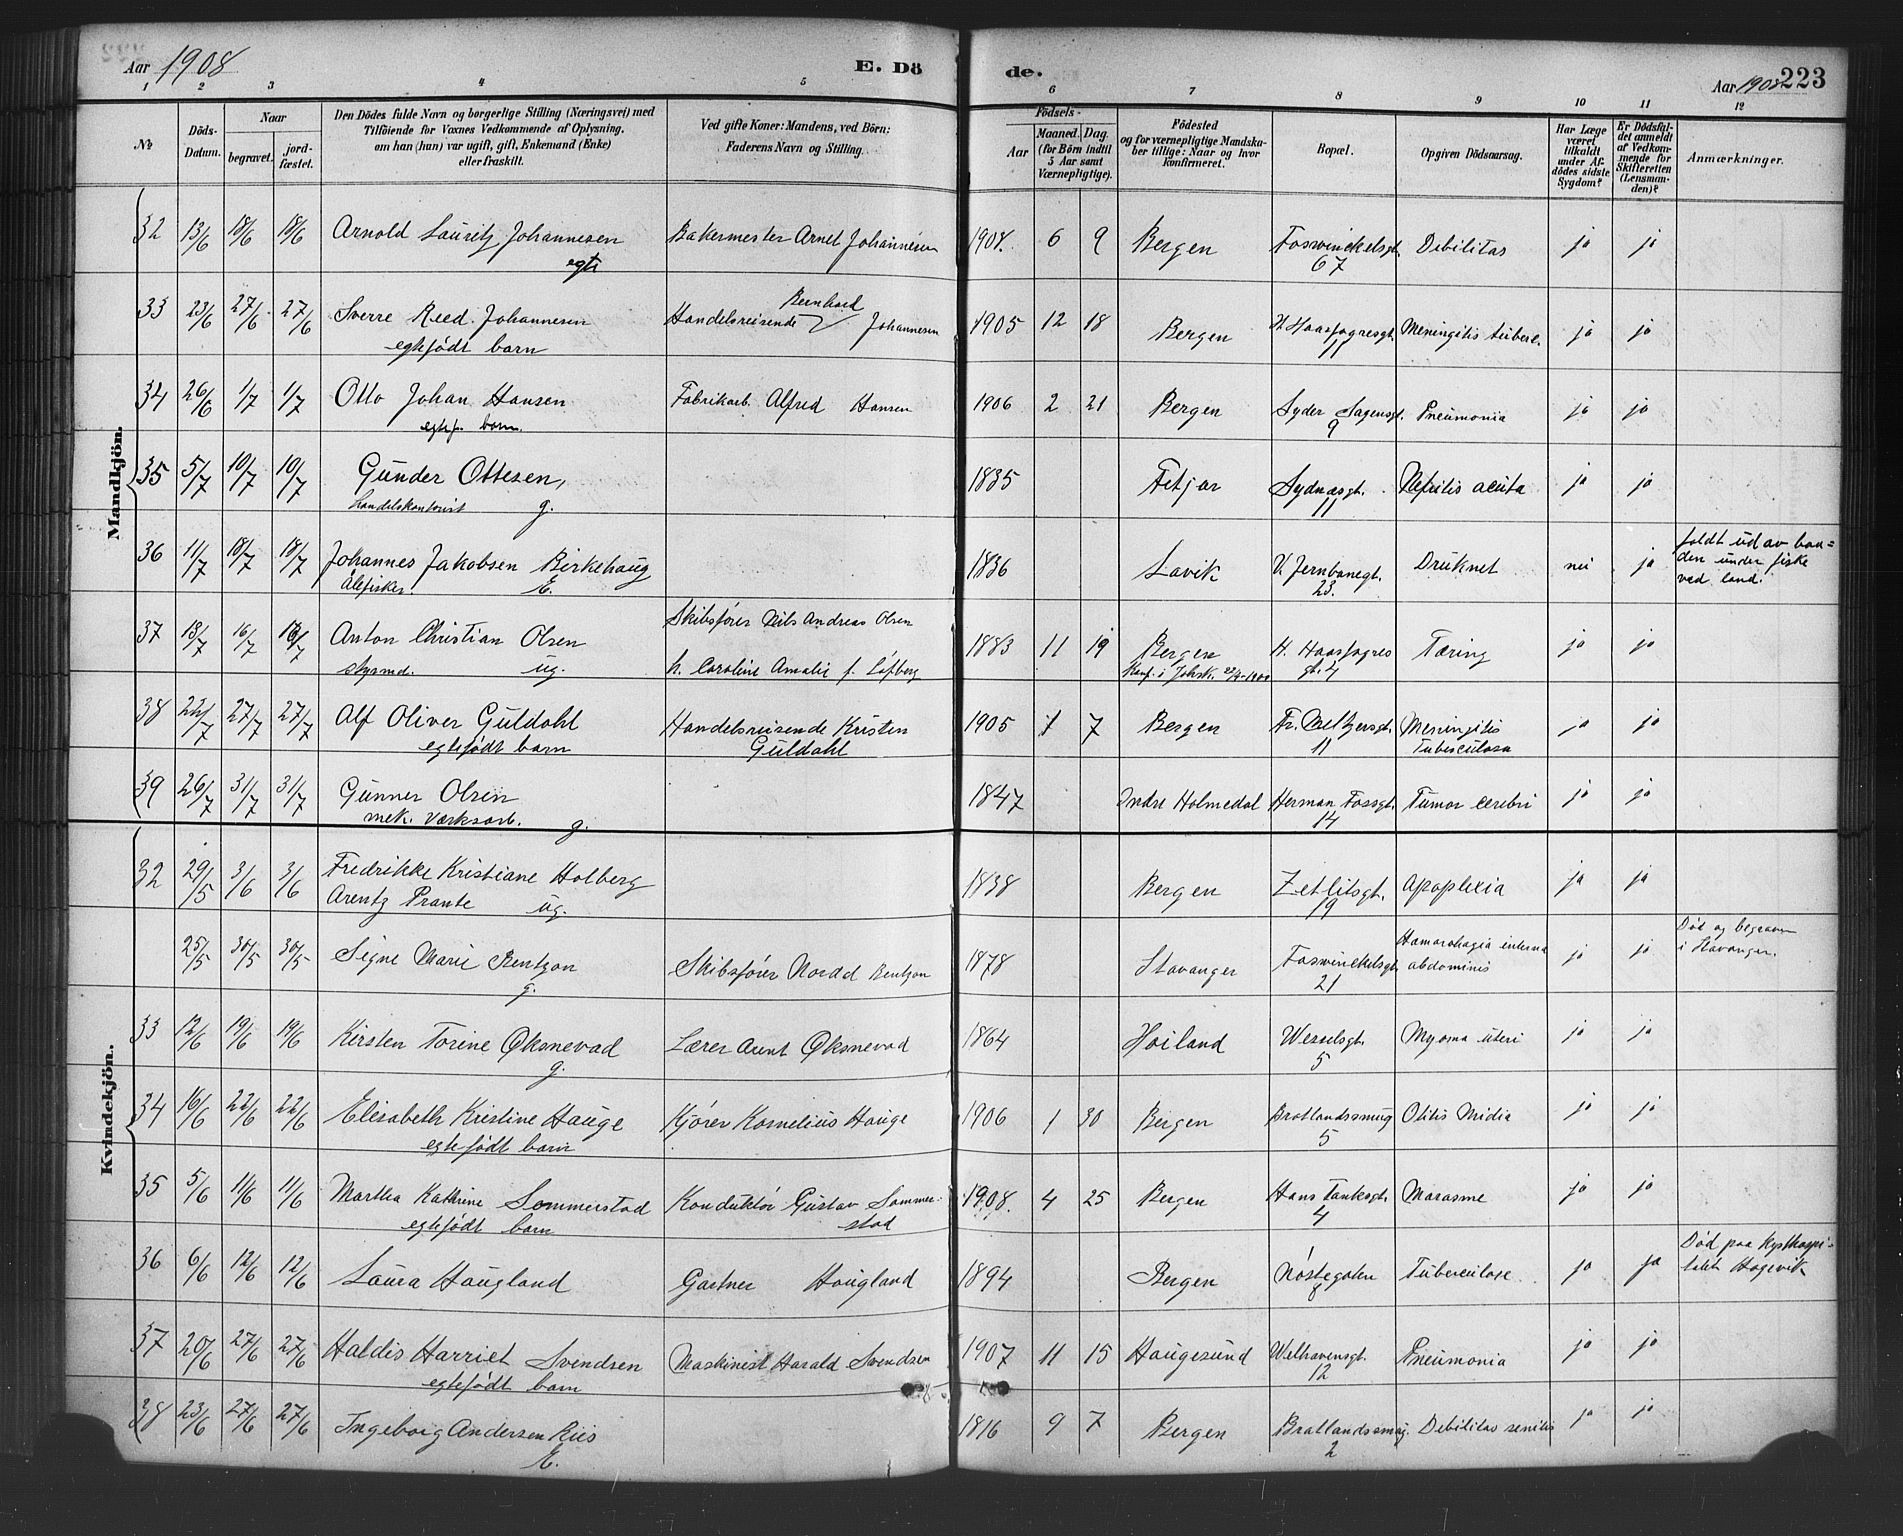 Aar 1908 E. Dö de. Aar 1908 223
1 2 3 4 5 6 7 8 9 10 11 12
№ Döds-Datum. Naar begravet. jordfæstet. Den Dödes fulde Navn og borgerlige Stilling (Næringsvei) med Tilföiende for Voxnes Vedkommende af Oplysning. om han (hun) var ugift, gift, Enkemand (Enke) eller fraskilt. Ved gifte Koner: Mandens, ved Börn: Faderens Navn og Stilling. Födsels- Aar Maaned. Dag. (for Börn indtil 5 Aar samt Værnepligtige). Födested og for værnepligtige Mandskaber tillige: Naar og hvor konfirmeret. Bopæl. Opgiven Dödsaarsag. Har Læge været tilkaldt under Afdödes sidste Sygdom? Er Dödsfaldet anmeldt af Vedkommende for Skifteretten (Lensmanden)? Anmærkninger.
Mandkjön.
32 13/6 18/6 18/6 Arnold Lauritz Johannesen Bakermester Arnet Johannesen 1908. 6 9 Bergen Fosswinckelsgt. Debilitas ja ja
egte 67
33 23/6 27/6 27/6 Sverre Reed. Johannesen Handelsreisende Bernhard Johannesen 1905 12 18 Bergen H. Haarfagresgt. Meningitis tuberc. ja ja
egtefödt barn 11
34 26/6 1/7 1/7 Otto Johan Hansen Fabrikarb. Alfred Hansen 1906 2 21 Bergen Lyder Sagensgt. Pneumonia ja ja
egtef. barn. 9
35 5/7 10/7 10/7 Gunder Ottesen, 1835 Fitjar Sydnæsgt. Nefritis acuta ja ja
Handelskontorist g. 11
36 11/7 18/7 18/7 Johannes Jakobsen Birkehaug 1836 Lavik V. Jernbanegt. Druknet nei ja faldt ud av baaden under fiske ved land.
Ålefisker. E. 23.
37 13/7 16/7 Anton Christian Olsen Skibsfører Nils Andreas Olsen 1883 11 19 Bergen H. Haarfagres Tæring ja ja
ug. h. Caroline Amalie f. Löfberg Konf. i Johsk. gt. 4
38 22/7 27/7 27/7 Alf Oliver Guldahl Handelsreisende Kristen 1905 1 7 Bergen Fr. Meltzersgt. Meningitis ja ja
egtefödt barn Guldahl 11 Tuberculosa
39 26/7 31/7 31/7 Gunner Olsen 1847 Indre Holmedal Herman Fossgt. Tumor cerebri ja ja
mek. Værksarb. g. 14
Kvindekjön.
32 29/5 3/6 3/6 Fredrikke Kristiane Holberg 1838 Bergen Zetlitsgt. Apoplexia ja ja
Arentz Prante ug. 19
25/5 30/5 30/5 Signe Marie Bentzon Skibsfører Nordd Bentzon 1878 Stavanger Fosswinckelsgt. Hæmorohagia interna ja ja Död og begraven
g. 21 abdominis i Stavanger.
33 12/6 19/6 19/6 Kirsten Torine Øksnevad Lærer Arent Øksnevad 1864 Høiland Wesselsgt. Myoma uteri ja ja
g. 5
34 16/6 22/6 22/6 Elisabeth Kristine Hauge Kjører Kornelius Hauge 1906 1 30 Bergen Bratlandssmug Otitis Midia ja ja
egtefödt barn 5
35 5/6 11/6 11/6 Martha Kathrine Sommerstad Konduktör Gustav Sommer- 1908. 4 25 Bergen Hans Tanksgt. Marasme ja ja
egtefödt barn stad 4
36 6/6 12/6 12/6 Laura Haugland Gartner Haugland 1894 Bergen Nöstegaten Tuberculose ja ja Död paa Kysthospi-
8 talet Hagevik
37 20/6 27/6 27/6 Haldis Harriet Svendsen Maskinist Harald Svendsen 1907 11 15 Haugesund Welhavensgt. Pneumonia ja ja
egtefödt barn 12
38 23/6 27/6 27/6 Ingeborg Andersen Riis 1816 9 7 Bergen Bratlandssmug. Debilitas senilis ja ja
E. 2